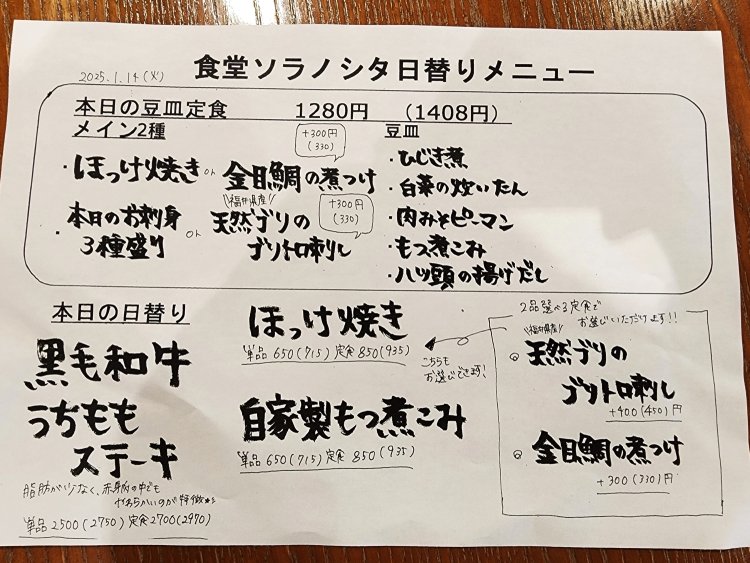 2025.1.14(火)
食堂ソラノシタ日替りメニュー
本日の豆皿定食 1280円 (1408円)
メイン2種
+300円
(330)
・ほっけ焼き or 金目鯛の煮つけ
\\福井県産//
+300円
(330)
・本日のお刺身
3種盛り or 天然ブリの
ブリトロ刺し
豆皿
・ひじき煮
・白菜の炊いたん
・肉みそピーマン
・もつ煮こみ
・八ツ頭の揚げだし
本日の日替り
黒毛和牛
うちもも
ステーキ
脂肪が少なく、赤身肉の中でも
やわらかいのが特徴★
単品2500(2750) 定食2700(2970)
ほっけ焼き
単品650(715) 定食850(935)
こちらも
お選びできます!
自家製もつ煮こみ
単品650(715) 定食850(935)
2品選べる定食で
お選びいただけます!!
\\福井県産//
◎天然ブリの
ブリトロ刺し
+400(450)円
◎金目鯛の煮つけ
+300(330)円